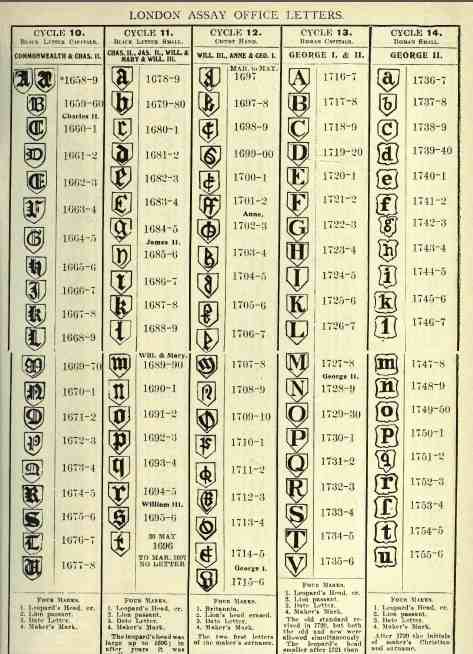 LONDON ASSAY OFFICE LETTERS.
CYCLE 10.
BLACK LETTER CAPITALS.
COMMONWEALTH & CHAS. II.
A A *1658-9
B 1659-60
Charles II.
C 1660-1
D 1661-2
E 1662-3
F 1663-4
G 1664-5
H 1665-6
I 1666-7
K 1667-8
L 1668-9
M 1669-70
N 1670-1
O 1671-2
P 1672-3
Q 1673-4
R 1674-5
S 1675-6
T 1676-7
U 1677-8
FOUR MARKS.
1. Leopard's Head, cr.
2. Lion passant.
3. Date Letter.
4. Maker's Mark.
CYCLE 11.
BLACK LETTER SMALL.
CHAS. II., JAS. II., WILL. &
MARY & WILL. III.
a 1678-9
b 1679-80
c 1680-1
d 1681-2
e 1682-3
f 1683-4
g 1684-5
James II.
h 1685-6
i 1686-7
k 1687-8
l 1688-9
Will. & Mary.
m 1689-90
n 1690-1
o 1691-2
p 1692-3
q 1693-4
r 1694-5
William III.
s 1695-6
t 30 MAY
1696
TO MAR. 1697
NO LETTER
FOUR MARKS.
1. Leopard's Head, cr.
2. Lion passant.
3. Date Letter.
4. Maker's Mark.
The leopard's head was
large up to 1680; in
after years it was
CYCLE 12.
COURT HAND.
WILL. III., ANNE & GEO. I.
MAR. to MAY.
1697
1697-8
1698-9
1699-00
1700-1
1701-2
Anne,
1702-3
1703-4
1704-5
1705-6
1706-7
1707-8
1708-9
1709-10
1710-1
1711-2
1712-3
1713-4
1714-5
George I.
1715-6
FOUR MARKS.
1. Britannia.
2. Lion's head erased.
3. Date Letter.
4. Maker's Mark.
The two first letters
of the maker's surname.
CYCLE 13.
ROMAN CAPITAL.
GEORGE I. & II.
A 1716-7
B 1717-8
C 1718-9
D 1719-20
E 1720-1
F 1721-2
G 1722-3
H 1723-4
I 1724-5
K 1725-6
L 1726-7
M 1727-8
George II.
N 1728-9
O 1729-30
P 1730-1
Q 1731-2
R 1732-3
S 1733-4
T 1734-5
V 1735-6
FOUR MARKS.
1. Leopard's Head, cr.
2. Lion passant.
3. Date Letter.
4. Maker's Mark.
The old standard re-
vised in 1720, but both
the old and new were
allowed simultaneously
The Leopard's head
smaller after 1721 than
CYCLE 14.
ROMAN SMALL.
GEORGE II.
a 1736-7
b 1737-8
c 1738-9
d 1739-40
e 1740-1
f 1741-2
g 1742-3
h 1743-4
i 1744-5
k 1745-6
l 1746-7
m 1747-8
n 1748-9
o 1749-50
p 1750-1
q 1751-2
r 1752-3
s 1753-4
t 1754-5
u 1755-6
FOUR MARKS.
1. Leopard's Head, cr.
2. Lion passant.
3. Date Letter.
4. Maker's Mark.
After 1739 the initials
of maker's Christian
and surname.